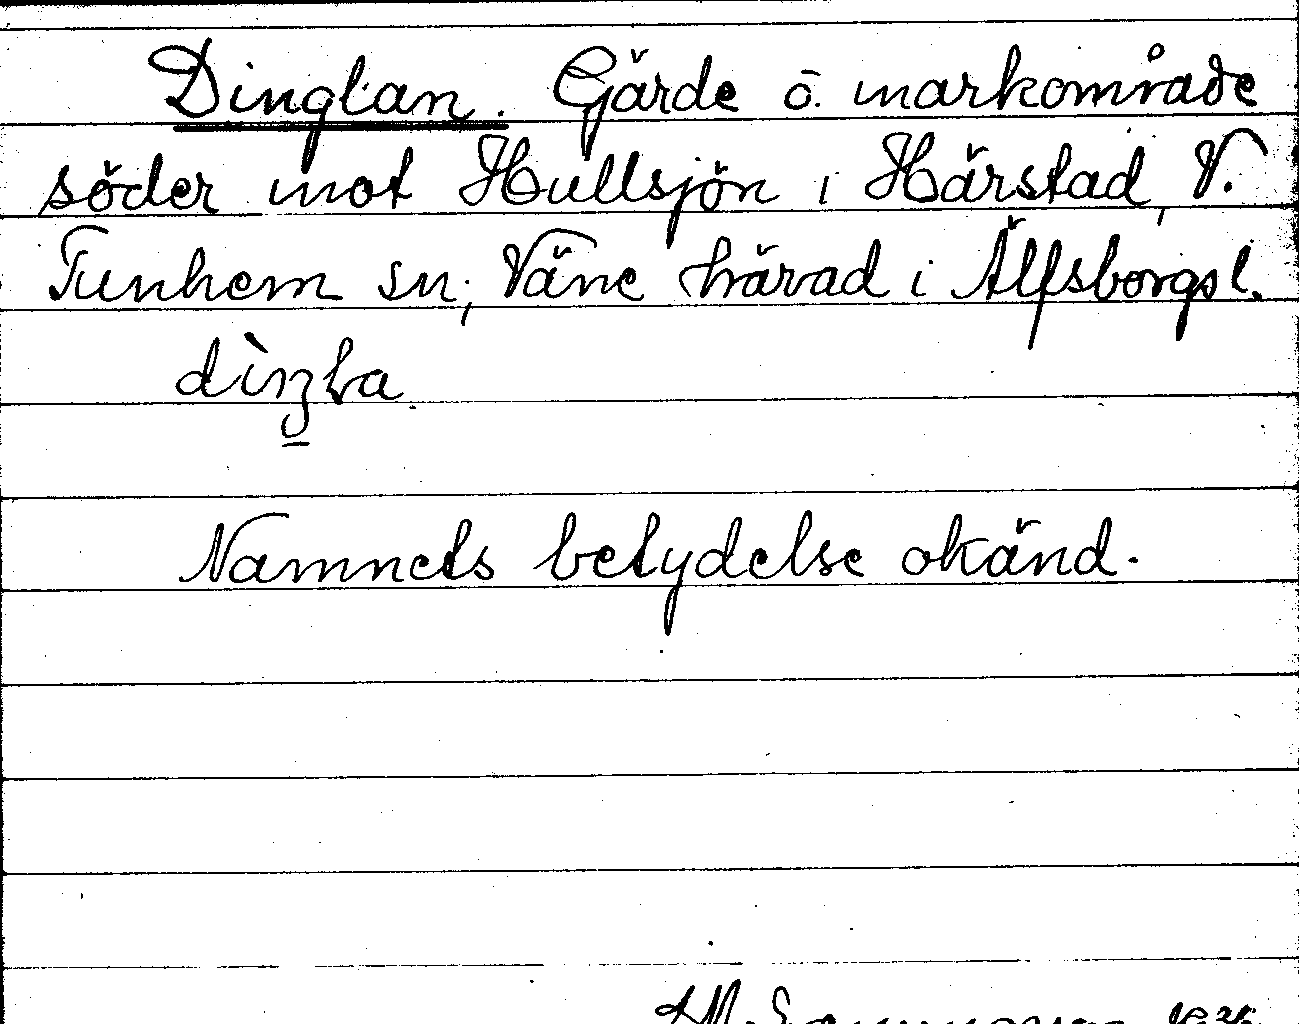 Dinglan. Gärde o. markområde
söder mot Hullsjön i Härstad, V.
Tunhem sn, Väne härad i Älfsborgs l.
Namnets betydelse okänd.